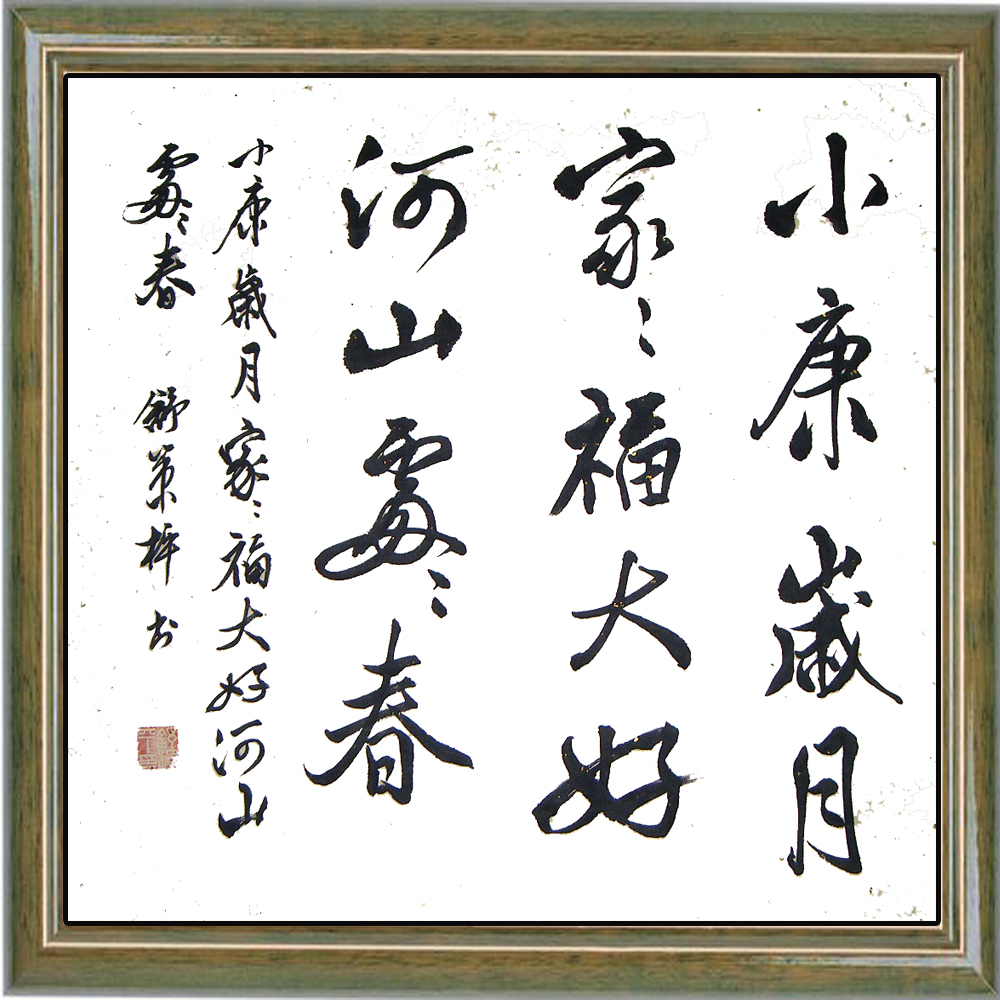 小康歲月
家〻福大好
河山處〻春
小康歲月家〻福大好河山
處〻春 舒策梓书